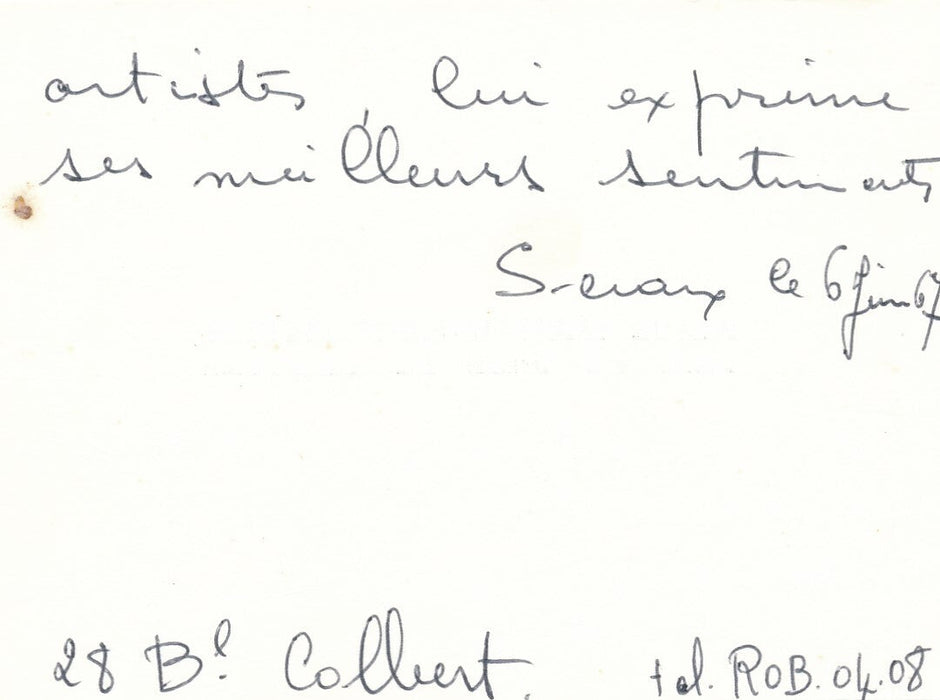 artistes, lui exprime
ses meilleurs sentiments
Sceaux le 6 juin 67
28 Bd Colbert. tel. ROB. 04.08